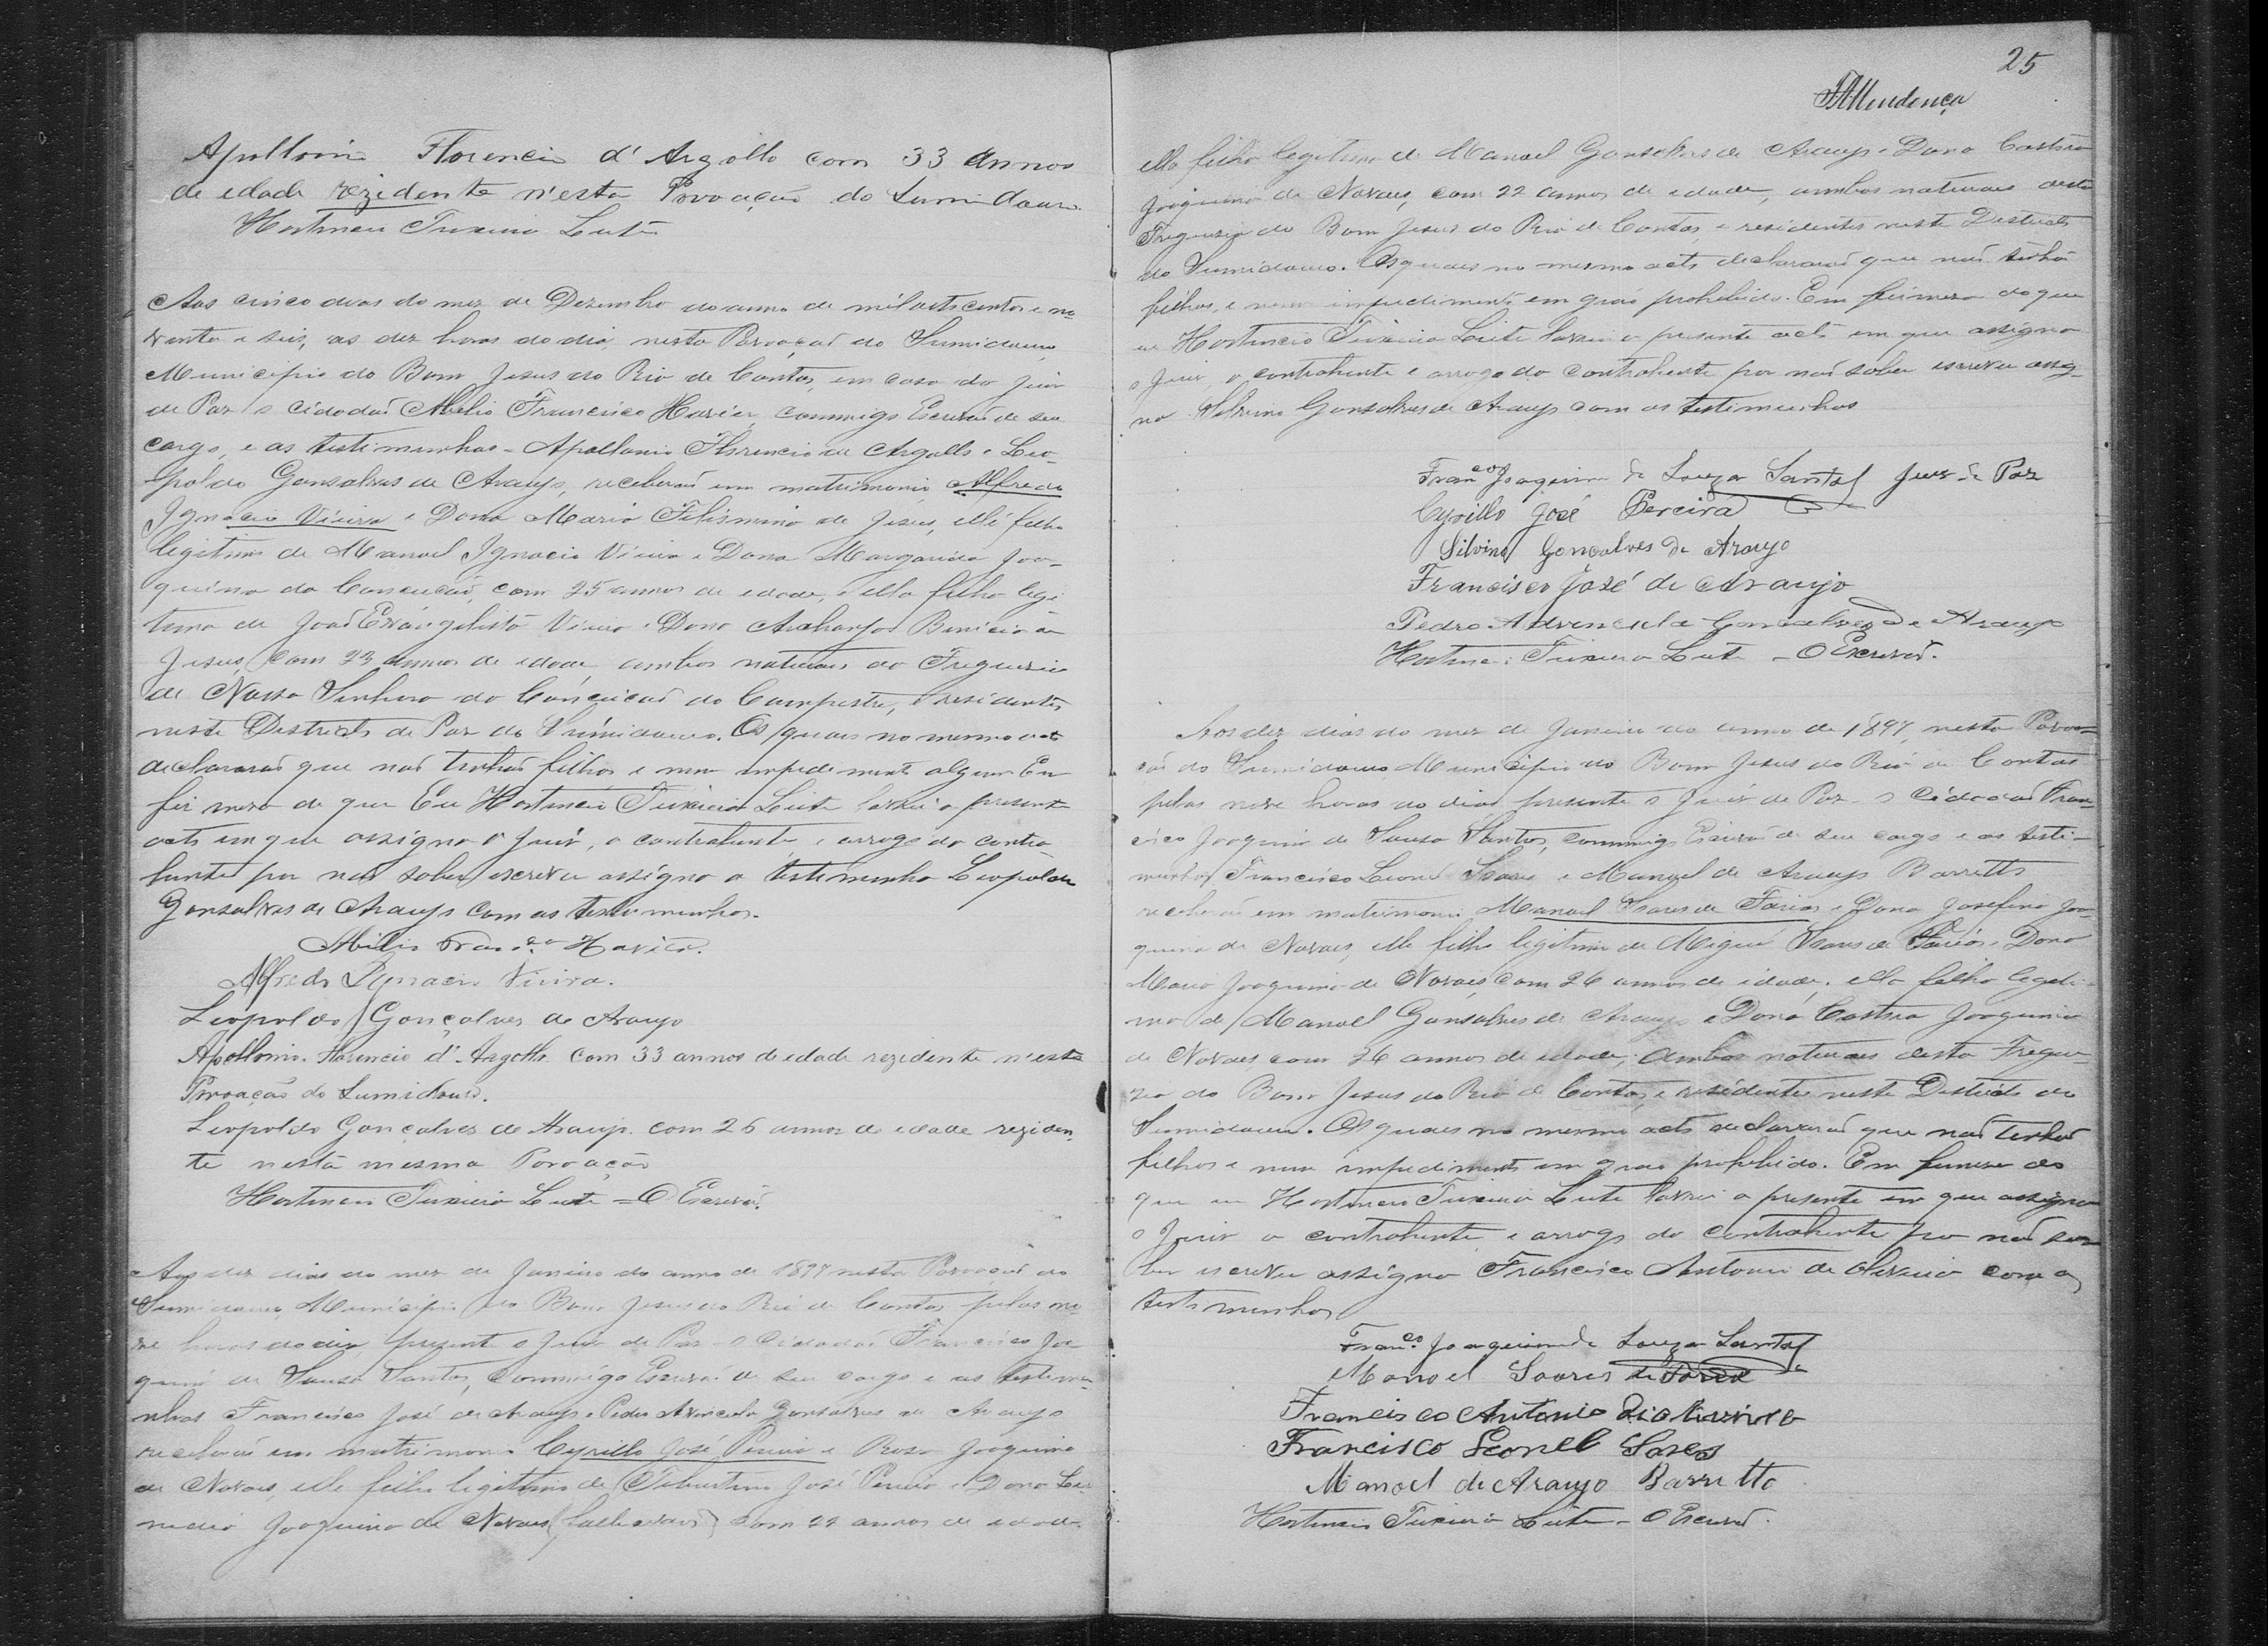 Apollonio Florencio d'Argollo com 33 annos
de edade rezidente n'esta Povoação do Sumidouro.
Hortencio Teixeira Leite
Aos cinco dias do mez de Dezembro do anno de mil oito centos e no-
venta e seis, as dez horas do dia, nesta Povoação do Sumidouro,
Municipio do Bom Jesus do Rio de Contas, em casa do Juiz
de Paz o Cidadaõ Abilio Francisco Xavier, commigo Escrivaõ de seu
cargo, e as testimunhas - Apollonio Florencio de Argollo e Leo-
poldo Gonsalves de Araujo, receberaõ em matrimonio Alfredo
Ignacio Vieira e Dona Maria Felismina de Jesus, elle filho
legitimo de Manuel Ignacio Vieira e Dona Margarida Joa-
quina da Conceicaõ, com 25 annos de edade, e ella filha legi-
tima de Joaõ Evangelista Vieira e Dona Archanja Benicia de
Jesus, com 23 annos de edade, ambos naturaes da Freguezia
de Nossa Senhora da Conceicaõ do Campestre, e residentes
neste Districto de Paz do Sumidouro. Os quaes no mesmo acto
declararaõ que naõ tinhaõ filhos e nem impedimento algum Em
firmeza do que Eu Hortencio Teixeira Leite lavrei o presente
acto em que assigna o Juiz, o contrahente, e arrogo da contra-
hente por naõ saber escrever assigna a testimunha Leopoldo
Gonsalves de Araujo com as testimunhas.
Abilio Franco Xavier.
Alfredo Ignacio Vieira.
Leopoldo Gonçalves de Araujo
Apollonio Florencio d'Argollo com 33 annos de edade rezidente n'esta
Povoação do Sumidouro.
Leopoldo Gonçalves de Araujo com 26 annos de edade reziden-
te nesta mesma Povoação
Hortencio Teixeira Leite = O Escrivaõ.
Aos dez dias do mez de Janeiro do anno de 1897 nesta Povoaçaõ do
Sumidouro, Municipio do Bom Jesus do Rio de Contas, pelas no-
ve horas do dia, presente o Juiz de Paz - o Cidadaõ Francisco Joa-
quim de Sousa Santos, commigo Escrivaõ de seu cargo e as testimu-
nhas Francisco José de Araujo e Pedro Avincula Gonsalves de Araujo
receberaõ em matrimonio Cyrillo José Pereira e Rosa Joaquina
de Novaes, elle filho legitimo de José Pereira e Dona
Joaquina de Novaes (fallecidos) com 22 annos de edade
25
FAMendonça
ella filha legitima de Manoel Gonsalves de Araujo e Dona Casthra
Joaquina de Novaes, com 22 annos de edade, ambos naturaes desta
Freguezia do Bom Jesus do Rio de Contas, e residentes neste Districto
do Sumidouro. Os quaes no mesmo acto declararaõ que naõ tinhaõ
filhos, e nem impedimento em gráo prohibido. Em firmeza do que
eu Hortencio Teixeira Leite lavrei o presente acto em que assigna
o Juiz, o contrahente e arrogo da contrahente por naõ saber escrever assig-
na Silvino Gonsalves de Araujo com as testimunhas
Franco Joaquim de Souza Santos Juiz de Paz
Cyrillo José Pereira
Silvino Gonçalves de Araujo
Francisco José de Araujo
Pedro Advincula Goncalves de Araujo
Hortencio Teixeira Leite - O Escrivaõ.
Aos dez dias do mez de Janeiro do anno de 1897, nesta Povoa-
çaõ do Sumidouro Municipio do Bom Jesus do Rio de Contas
pelas nove horas do dia, presente o Juiz de Paz - o Cidadaõ Fran-
cisco Joaquim de Sousa Santos, commigo Escrivaõ de seu cargo e as testi-
munhas Francisco Leonel Soares e Manoel de Araujo Barretto
receberaõ em matrimonio Manoel Soares de Farias e Dona Josefina Joa-
quina de Novaes, elle filho legitimo de Miguel Soares de Farias e Dona
Maria Joaquina de Novaes, com 26 annos de idade, ella filha legiti-
ma de Manoel Gonsalves de Araujo e Dona Casthra Joaquina
de Novaes com 26 annos de idade, ambos naturaes desta Fregue-
zia do Bom Jesus do Rio de Contas, e residentes neste Districto do
Sumidouro. Os quaes no mesmo acto declararaõ que naõ tinhaõ
filhos e nem impedimento em grao prohibido. Em firmeza do
que eu Hortencio Teixeira Leite lavrei o presente em que assigna
o Juiz o contrahente e arrogo da contrahente por naõ sa-
ber escrever assigna Francisco Antonio de Oliveira com as
testimunhas
Franco Joaquim de Souza Santos
Manoel Soares de Farias
Francisco Antonio de Oliveira
Francisco Leonel Soares
Manoel de Araujo Barretto
Hortencio Teixeira Leite - O Escrivaõ.